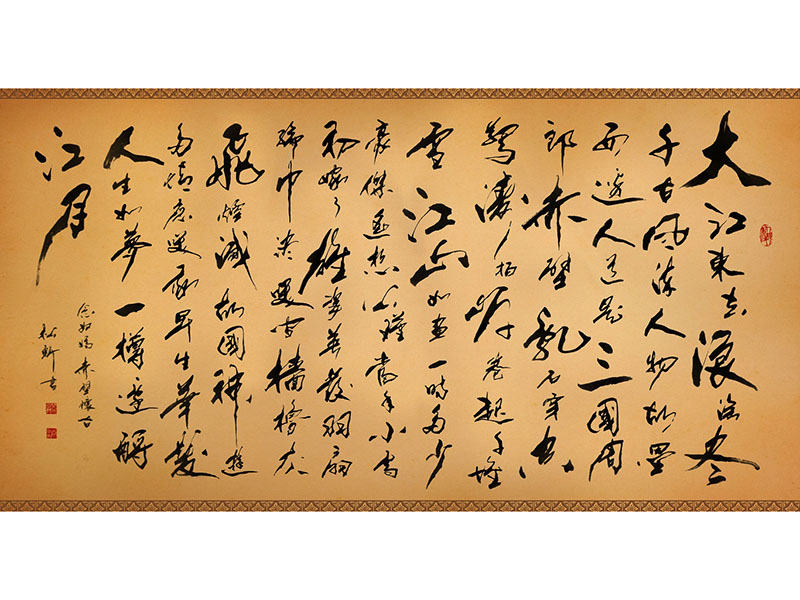 大江東去浪淘盡
千古風流人物故壘
西邊人道是三國周
郎赤壁亂石穿空
驚濤拍岸卷起千堆
雪江山如畫一時多少
豪傑遙想公瑾當年小喬
初嫁了雄姿英發羽扇
綸巾談笑間檣櫓灰
飛煙滅故國神遊
多情應笑我早生華髮
人生如夢一樽還酹
江月
念奴嬌赤壁懷古